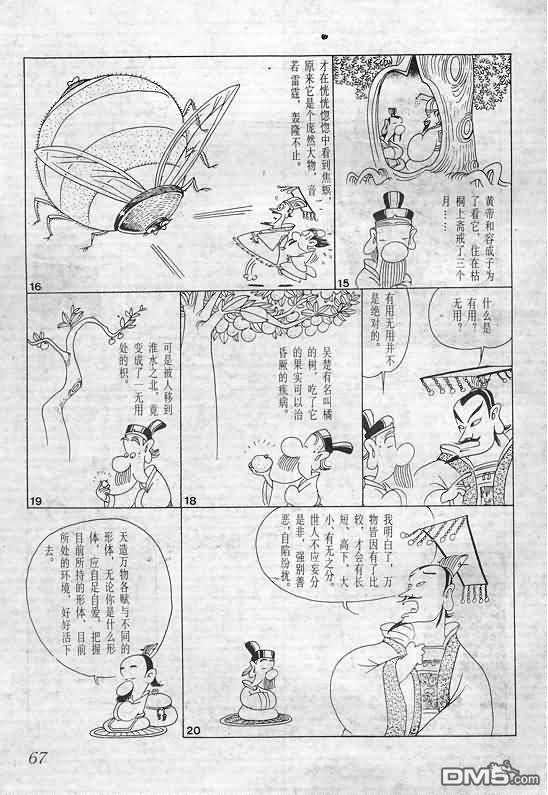 黄帝和容成子为
了看它，住在枯
桐上斋戒了三个
月……
15
才在恍恍惚惚中看到焦螟，
原来它是个庞然大物，音
若雷霆，轰隆不止。
16
什么是
有用？
无用？
有用无用并不
是绝对的。
吴楚有名叫橘
的树，吃了它
的果实可以治
昏厥的疾病。
18
可是被人移到
淮水之北，竟
变成了一无用
处的枳。
19
我明白了，万
物皆因有了比
较，才会有长
短、高下、大
小、有无之分。
世人不应妄分
是非，强别善
恶，自陷纷扰。
20
天造万物各赋与不同的
形体，无论你是什么形
体，应自足自爱，把握
目前所持的形体，目前
所处的环境，好好活下
去。
67
DM5.com